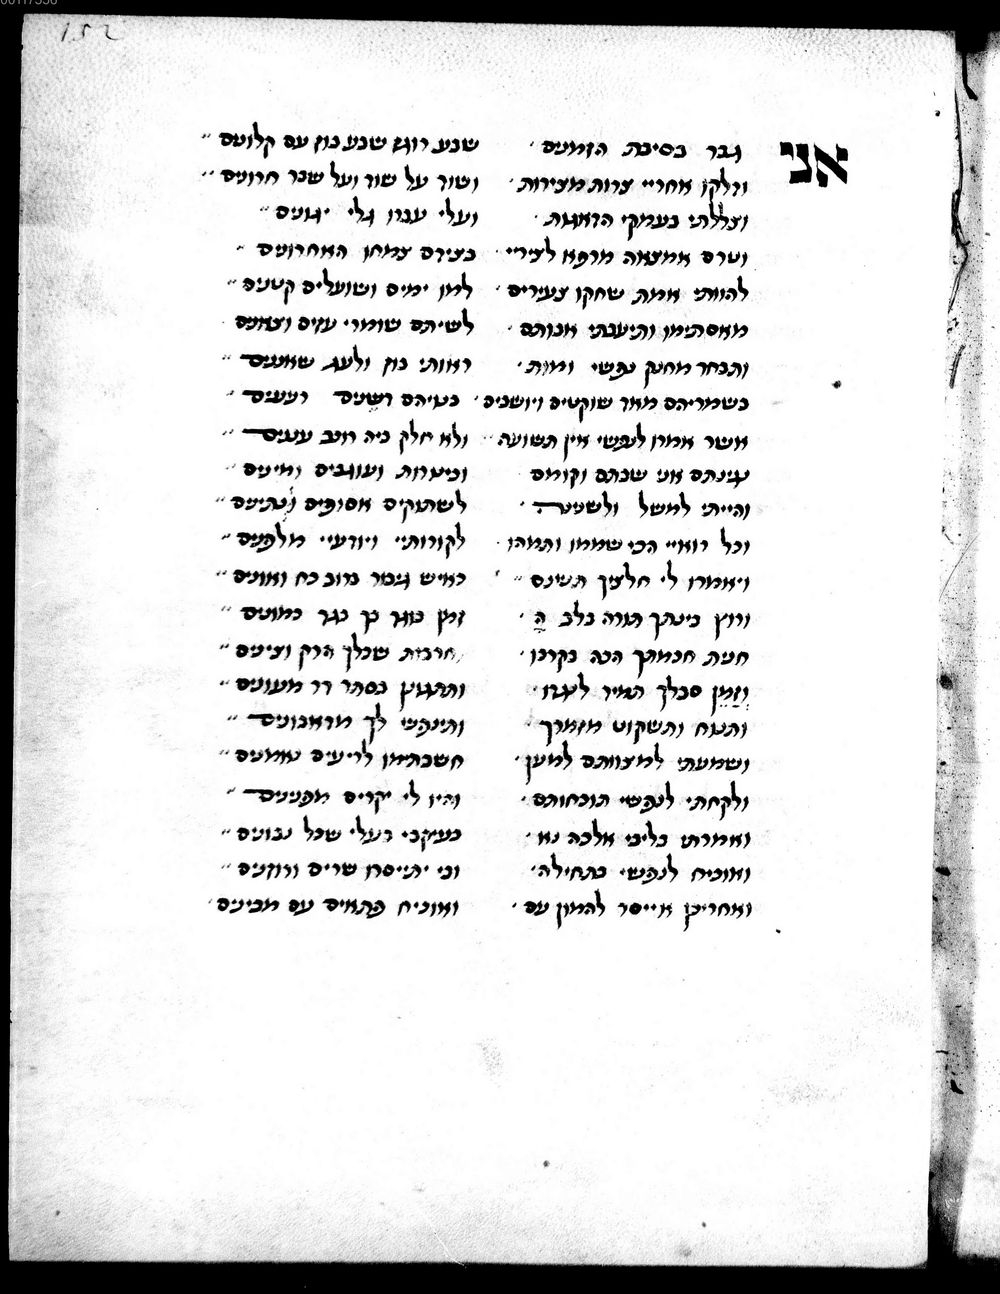 152
אני גבר בסיבת הזמנים · שבע רוגז שבע בוז עם קלונים
ודלקו אחריי צרות מצירות · ושוד על שוד ועל שבר חרונים
וצללתי בעמקי הדאגות · ועלי עברו גלי יגונים
וטרם אמצאה מרפא לציריי · בצירם צמחו האחרונים
להוותי אמת שחקו צעירים · למו ימים ושועלים קטנים
מאסתימו ותיעבתי אבותם · לשיתם שומרי עזים וצאנים
ותבחר מחנק נפשי ומות · ראותי בוז ולעג שאננים
בשמריהם מאד שוקטים ויושבים · בטיהם דשנים רעננים
אשר אמרו לנפשי אין תשועה · ולא חלק ביה רוכב עננים
נגינתם אני שבתם וקומם · וכיערות ועוגבים ומינים
והייתי למשל ולשנינה · לשתוקים אסופים ונתינים
וכל רואיי הכי שממו ותמהו · לקורותיי ויודעיי מלפנים
ויאמרו לי חלציך תשינס · כאיש גבור ברוב כח ואונים
ורוץ בינתך תורה בלב · זמן בוגד בך בגד כמונים
חנית חכמתך הכה בקרבו · חרבות שכלך הרק וצינים
וזמן סבלך תמיד לעבדו · ותתגונן בסתר רר מעונים
ותנוח ותשקוט מזמרך · ותינפשי לך מדאבונים
ושמעתי למצוותם למען · חשבתימו לריעים נאמנים
ולקחתי לנפשי תוכחותם · והיו לי יקרים מפנינים
ואמרתי בליבי אלכה נא · בעיקבי בעלי שכל נבונים
ואוכיח לנפשי בתחילה · ובי יתייסרו שרים ורוזנים
ואחריכן אייסר להמון עם · ואוכיח פתאים עם מבינים